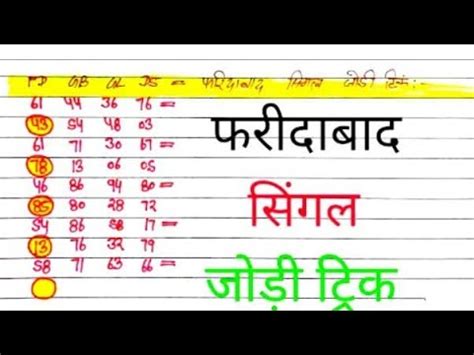 FD GB GL DS = फरीदाबाद सिंगल जोड़ी ट्रिक :-
61 44 36 76 =
43 54 48 03
61 71 30 67 =
78 13 06 05
46 86 94 80 =
85 80 28 72
54 86 58 17 =
13 76 32 79
58 71 63 66 =
फरीदाबाद
सिंगल
जोड़ी ट्रिक